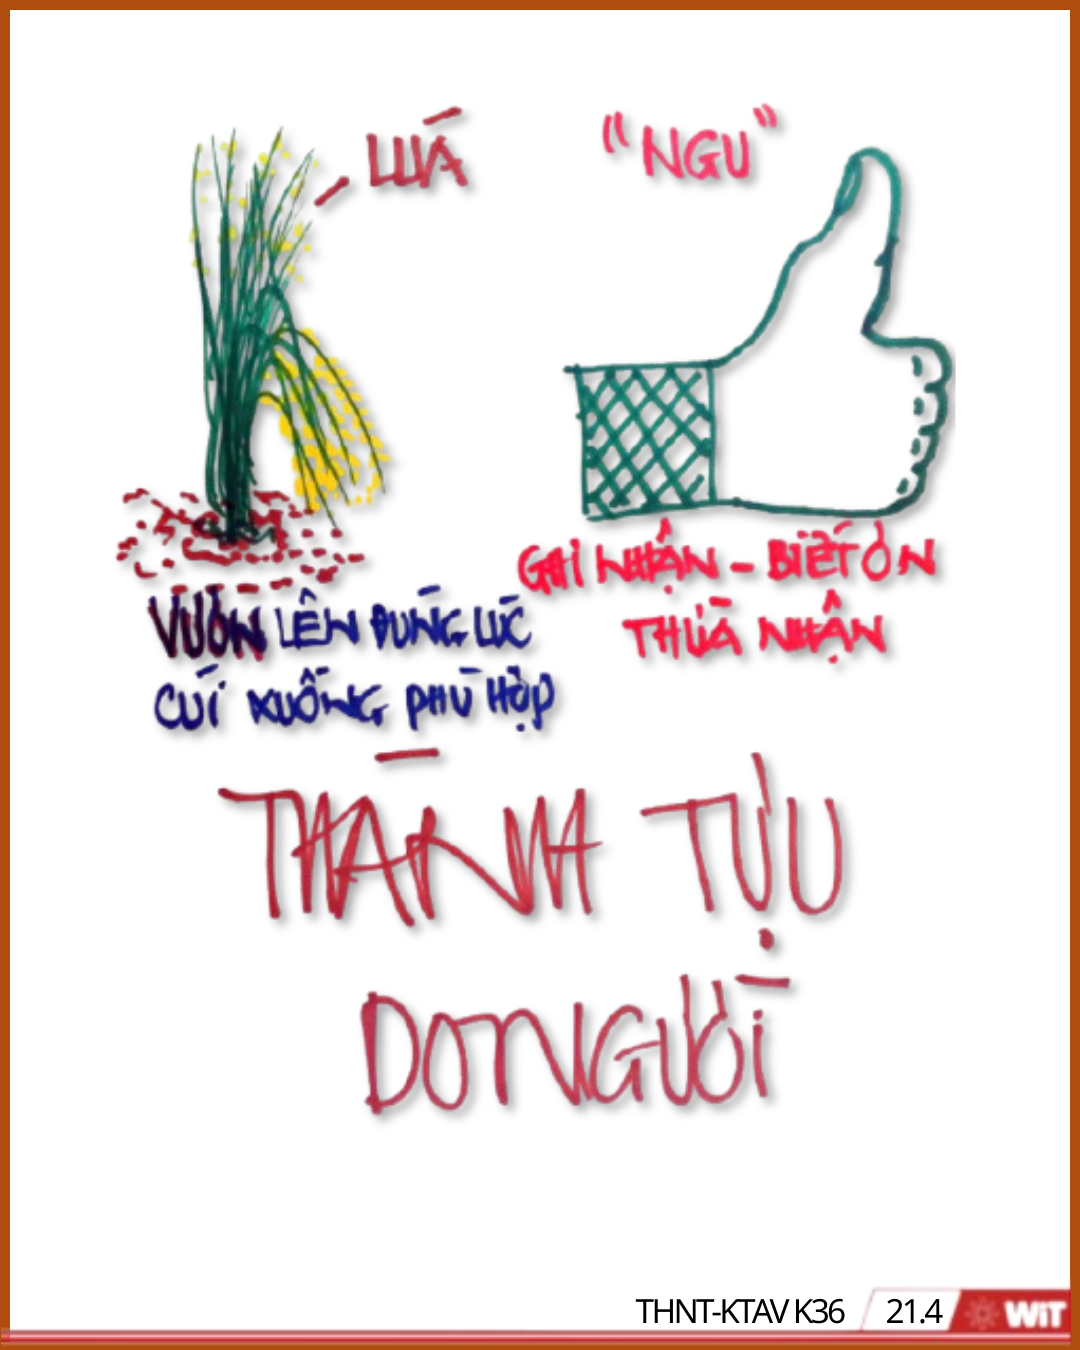 LÚA
"NGU"
VƯƠN LÊN ĐÚNG LÚC
CÚI XUỐNG PHÙ HỢP
GHI NHẬN - BIẾT ƠN
THỪA NHẬN
THÀNH TỰU
DO NGƯỜI
THNT-KTAV K36
21.4
WiT